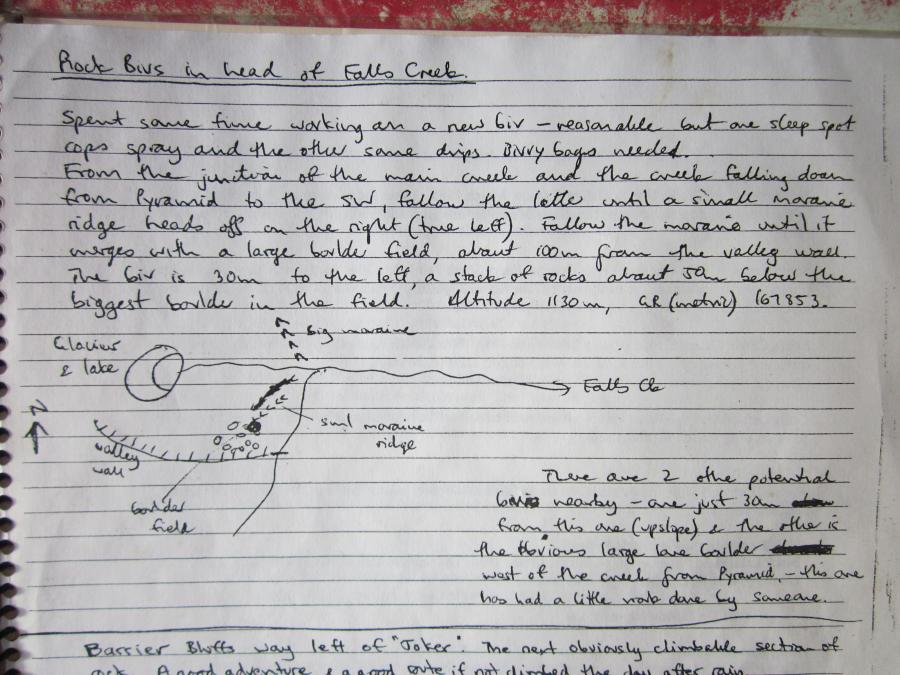 Rock Bivs in head of Falls Creek.
Spent some time working on a new biv - reasonable but one sleep spot
cops spray and the other some drips. Bivvy bags needed.
From the junction of the main creek and the creek falling down
from Pyramid to the SW, follow the latter until a small moraine
ridge heads off on the right (true left). Follow the moraine until it
merges with a large boulder field, about 100m from the valley wall.
The biv is 30m to the left, a stack of rocks about 50m below the
biggest boulder in the field. Altitude 1130m, GR (metric) 167853.
big moraine
Glacier
& lake
Falls Ck
N
small moraine
ridge
valley
wall
boulder
field
There are 2 other potential
bivis nearby - one just 30m
from this one (upslope) & the other is
the obvious large lone boulder
west of the creek from Pyramid, - this one
has had a little work done by someone.
Barrier Bluffs way left of "Joker". The next obviously climbable section of
rock. A good adventure & a good route if not climbed the day after rain.